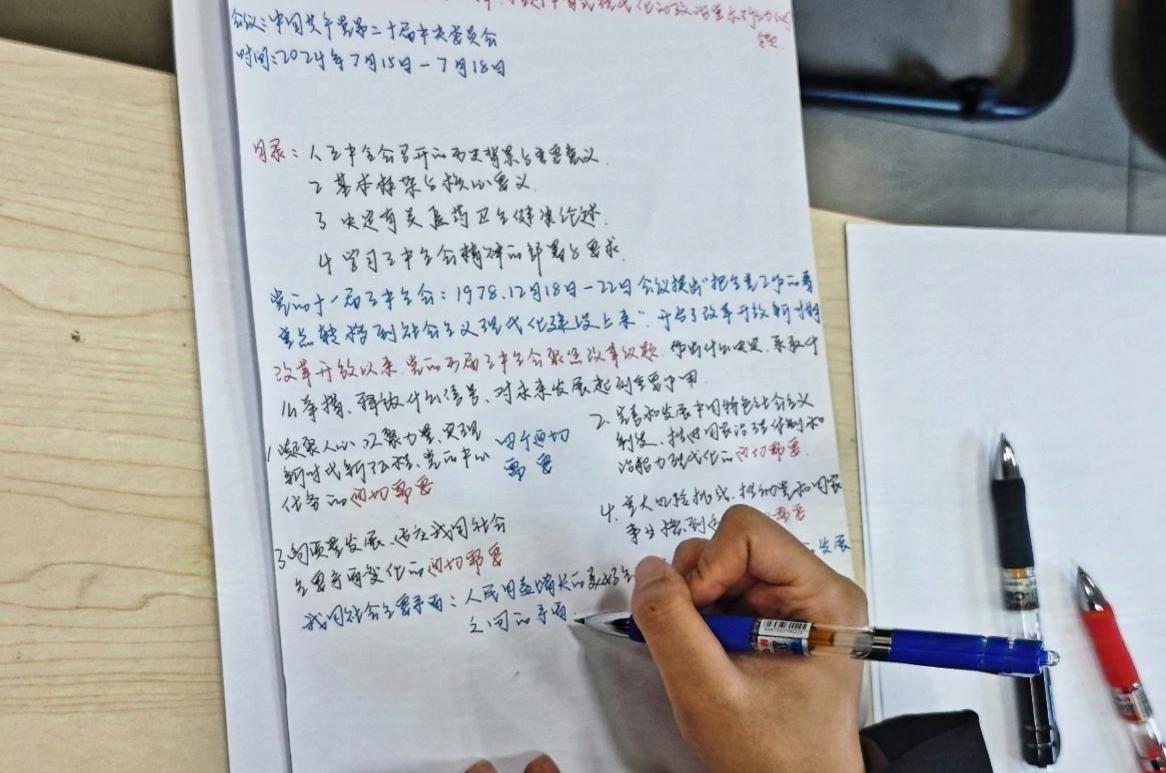 会议：中国共产党第二十届中央委员会
时间：2024年7月15日－7月18日
目录：1 三中全会召开的历史背景与重要意义.
2 基本框架与核心要义.
3 决定有关医药卫生健康论述.
4 学习三中全会精神的部署与要求.
党的十一届三中全会：1978.12月18日－22日会议提出"把全党工作的着
重点转移到社会主义现代化建设上来"开启了改革开放新时期
改革开放以来,党的历届三中全会聚焦改革议题. 作出什么决定、采取什
么举措、释放什么信号、对未来发展起到重要作用.
1.凝聚人心、汇聚力量、实现
新时代新征程、党的中心
任务的迫切需要
四个迫切
需要
2. 完善和发展中国特色社会主义
制度、推进国家治理体系和
治理能力现代化的迫切需要.
3.高质量发展、适应我国社会
主要矛盾变化的迫切需要
4. 重大风险挑战、推动党和国家
事业
需要
发展
我国社会主要矛盾：人民日益增长的美好生
之间的矛盾.